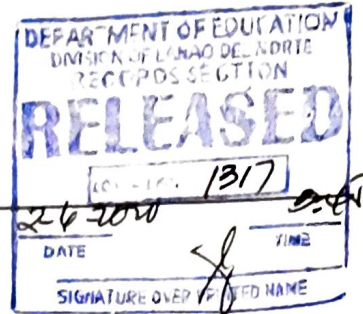 DEPARTMENT OF EDUCATION
DIVISION OF LANAO DEL NORTE
RECORDS SECTION
RELEASED
1317
2-6-2020
DATE TIME
SIGNATURE OVER PRINTED NAME